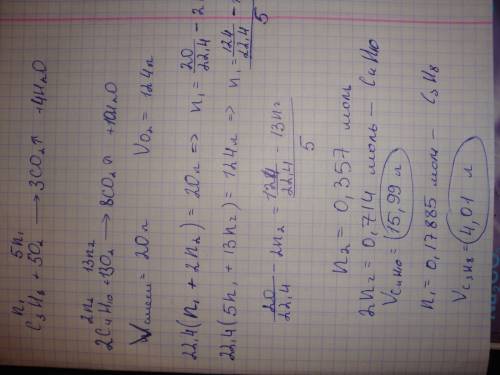 n₁ 5n₁
C₃H₈ + 3O₂ ⟶ 3CO₂↑ + 4H₂O
2n₂ 13n₂
2C₄H₁₀ + 13O₂ ⟶ 8CO₂↑ + 10H₂O
Vсмеси = 20л VO₂ = 124л
22,4(n₁ + 2n₂) = 20л => n₁ = 20/22,4 - 2
22,4(5n₁ + 13n₂) = 124л => n₁ = (124/22,4 -
5
20/22,4 - 2n₂ = (124/22,4 - 13n₂)/5
n₂ = 0,357 моль
2n₂ = 0,714 моль - C₄H₁₀
VC₄H₁₀ = 15,99 л
n₁ = 0,17885 моль - C₃H₈
VC₃H₈ = 4,01 л